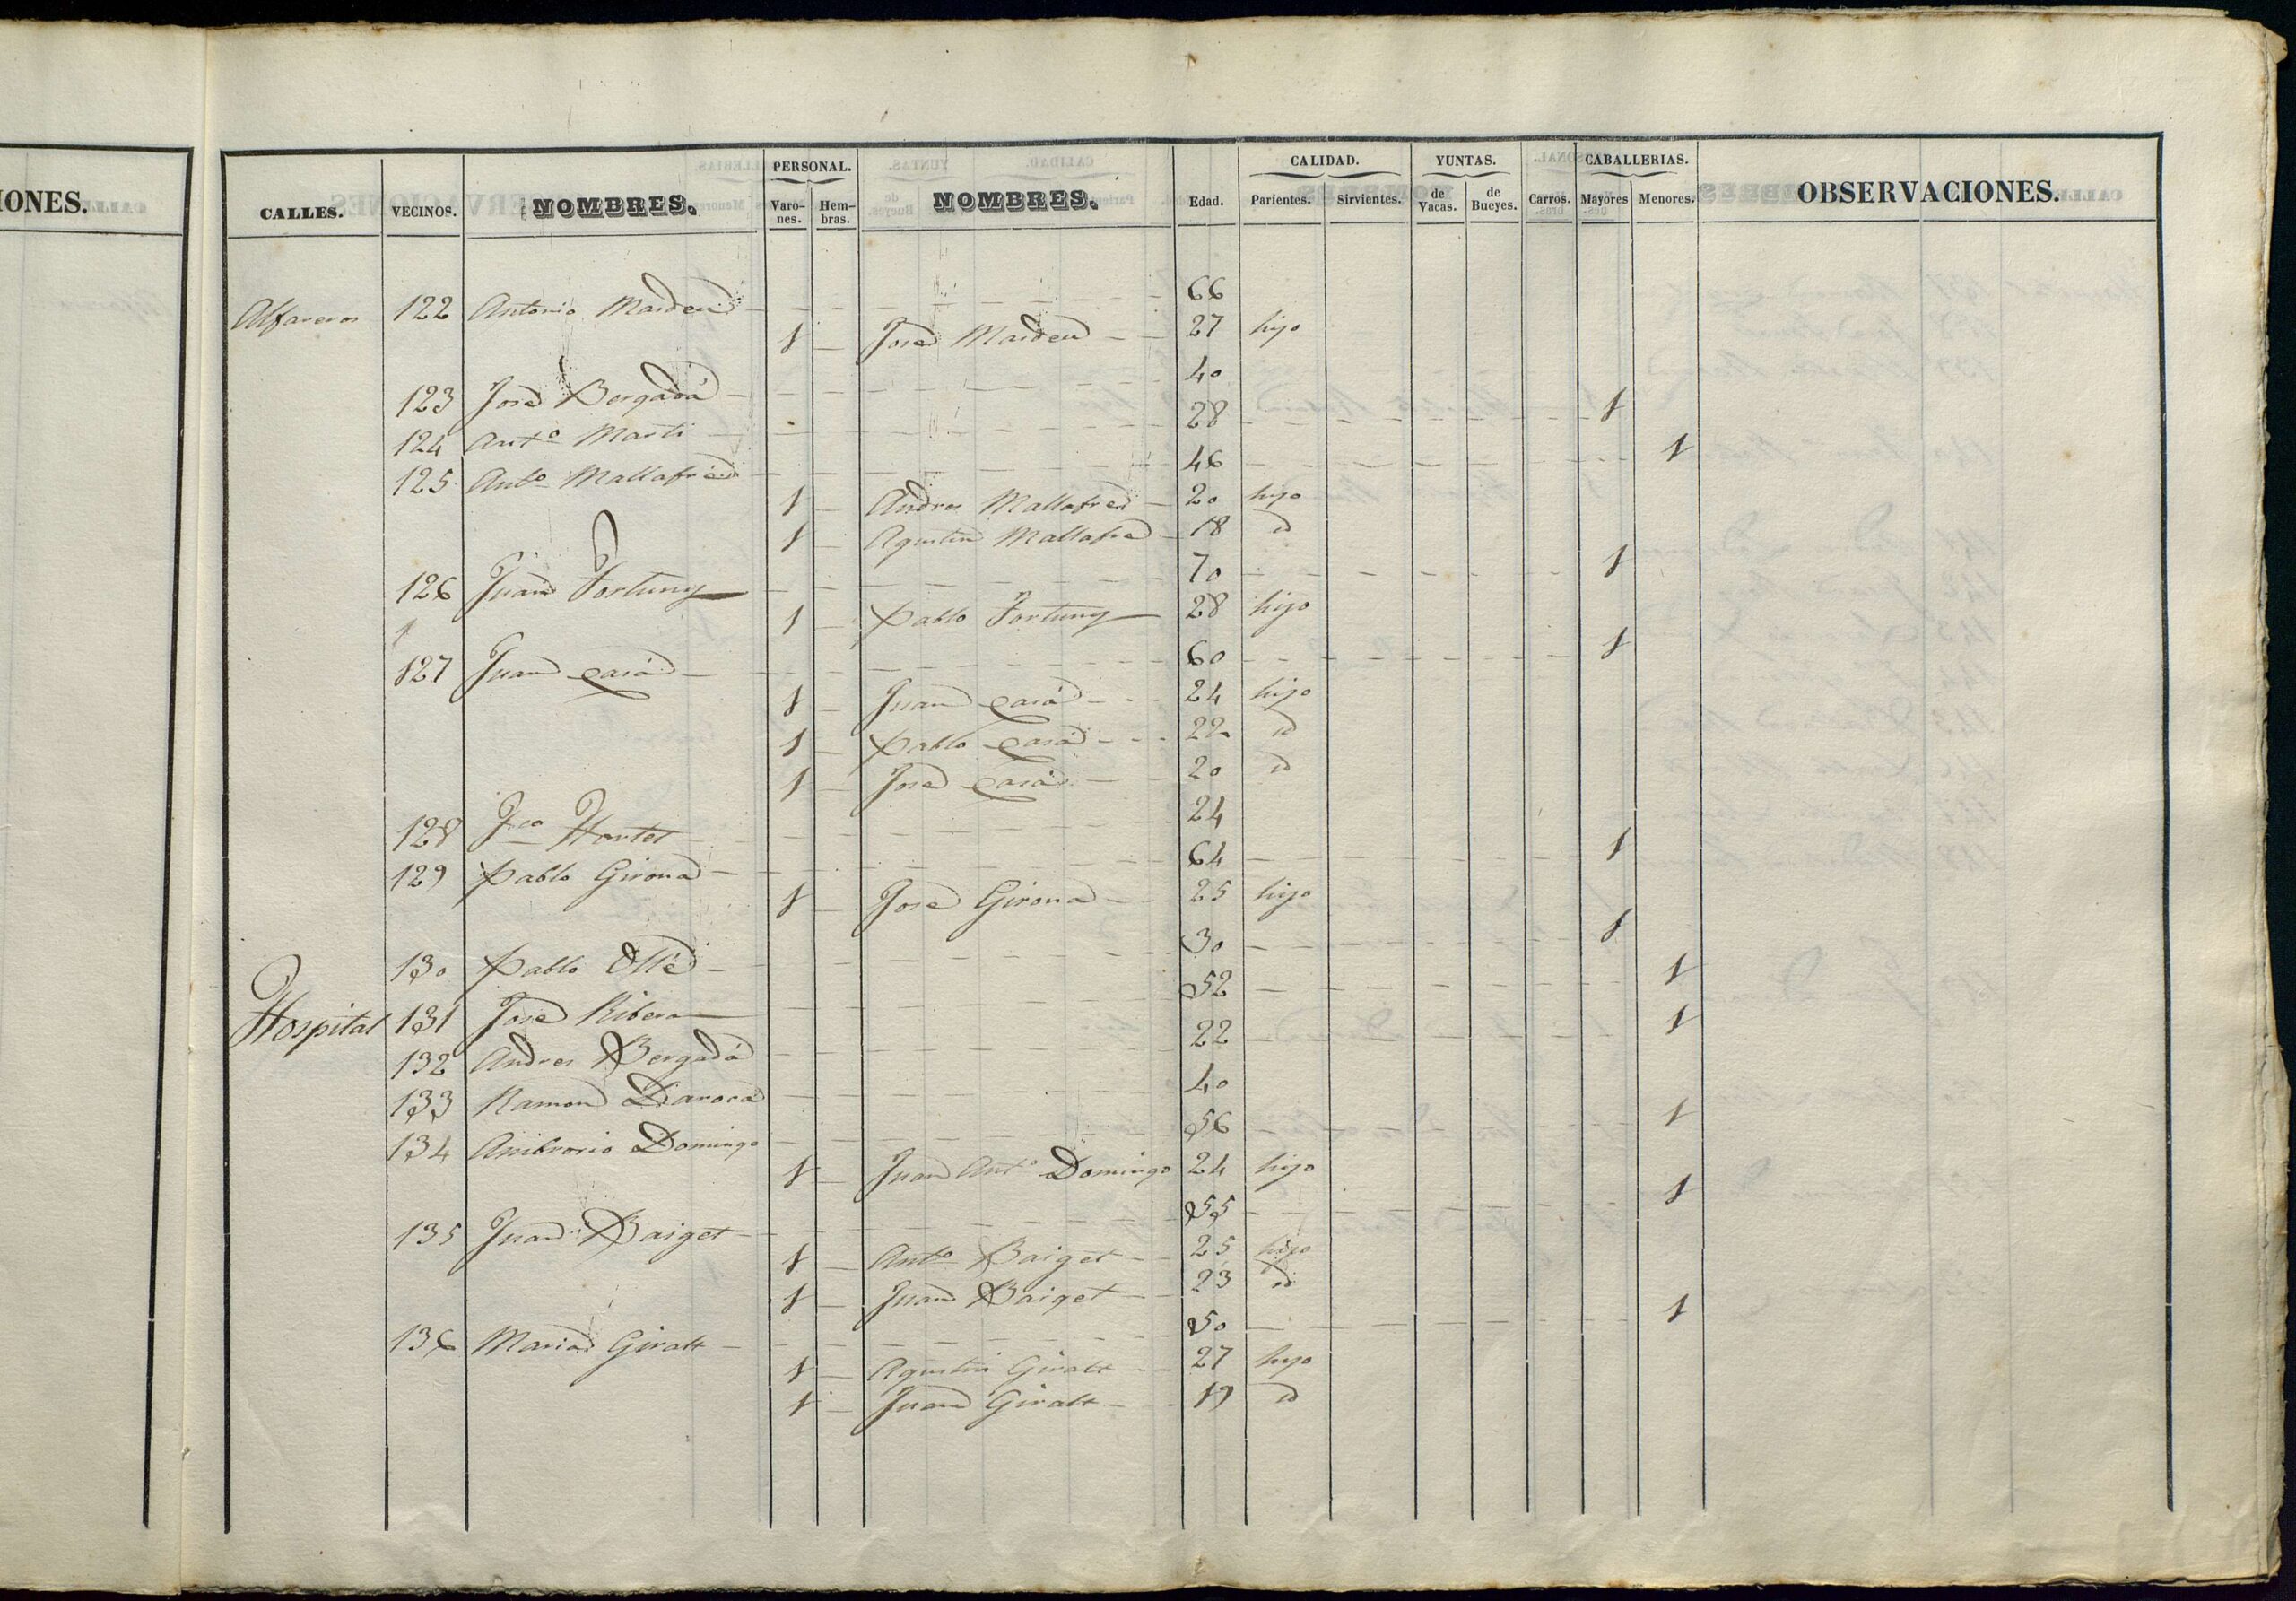 IONES.
CALLES. VECINOS. NOMBRES. PERSONAL. Varones. Hembras. NOMBRES. Edad. CALIDAD. Parientes. Sirvientes. YUNTAS. de Vacas. de Bueyes. Carros. CABALLERIAS. Mayores Menores. OBSERVACIONES.
Alfareros 122 Antonio 66
1 José 27 hijo
123 José Bergadá 40 1
124 Ant.º Marti 28 1
125 Ant.º Mallafré 46
1 Andres Mallafré 20 hijo
1 Agustin Mallafré 18 id
126 Juan Fortuny 70 1
1 Pablo Fortuny 28 hijo
127 Juan 60 1
1 Juan 24 hijo
1 Pablo 22 id
1 José 20 id
128 Fco Hortet 24
129 Pablo Girona 64 1
1 José Girona 25 hijo
130 Pablo Ollé 30 1
Hospital 131 José Ribera 52 1
132 Andres Bergadá 22 1
133 Ramon Daroca 40
134 Ambrosio Domingo 56 1
1 Juan Ant.º Domingo 24 hijo
135 Juan Baiget 55 1
1 Ant.º Baiget 25 hijo
1 Juan Baiget 23 id
136 Maria Giralt 50 1
1 Agustin Giralt 27 hijo
1 Juan Giralt 19 id